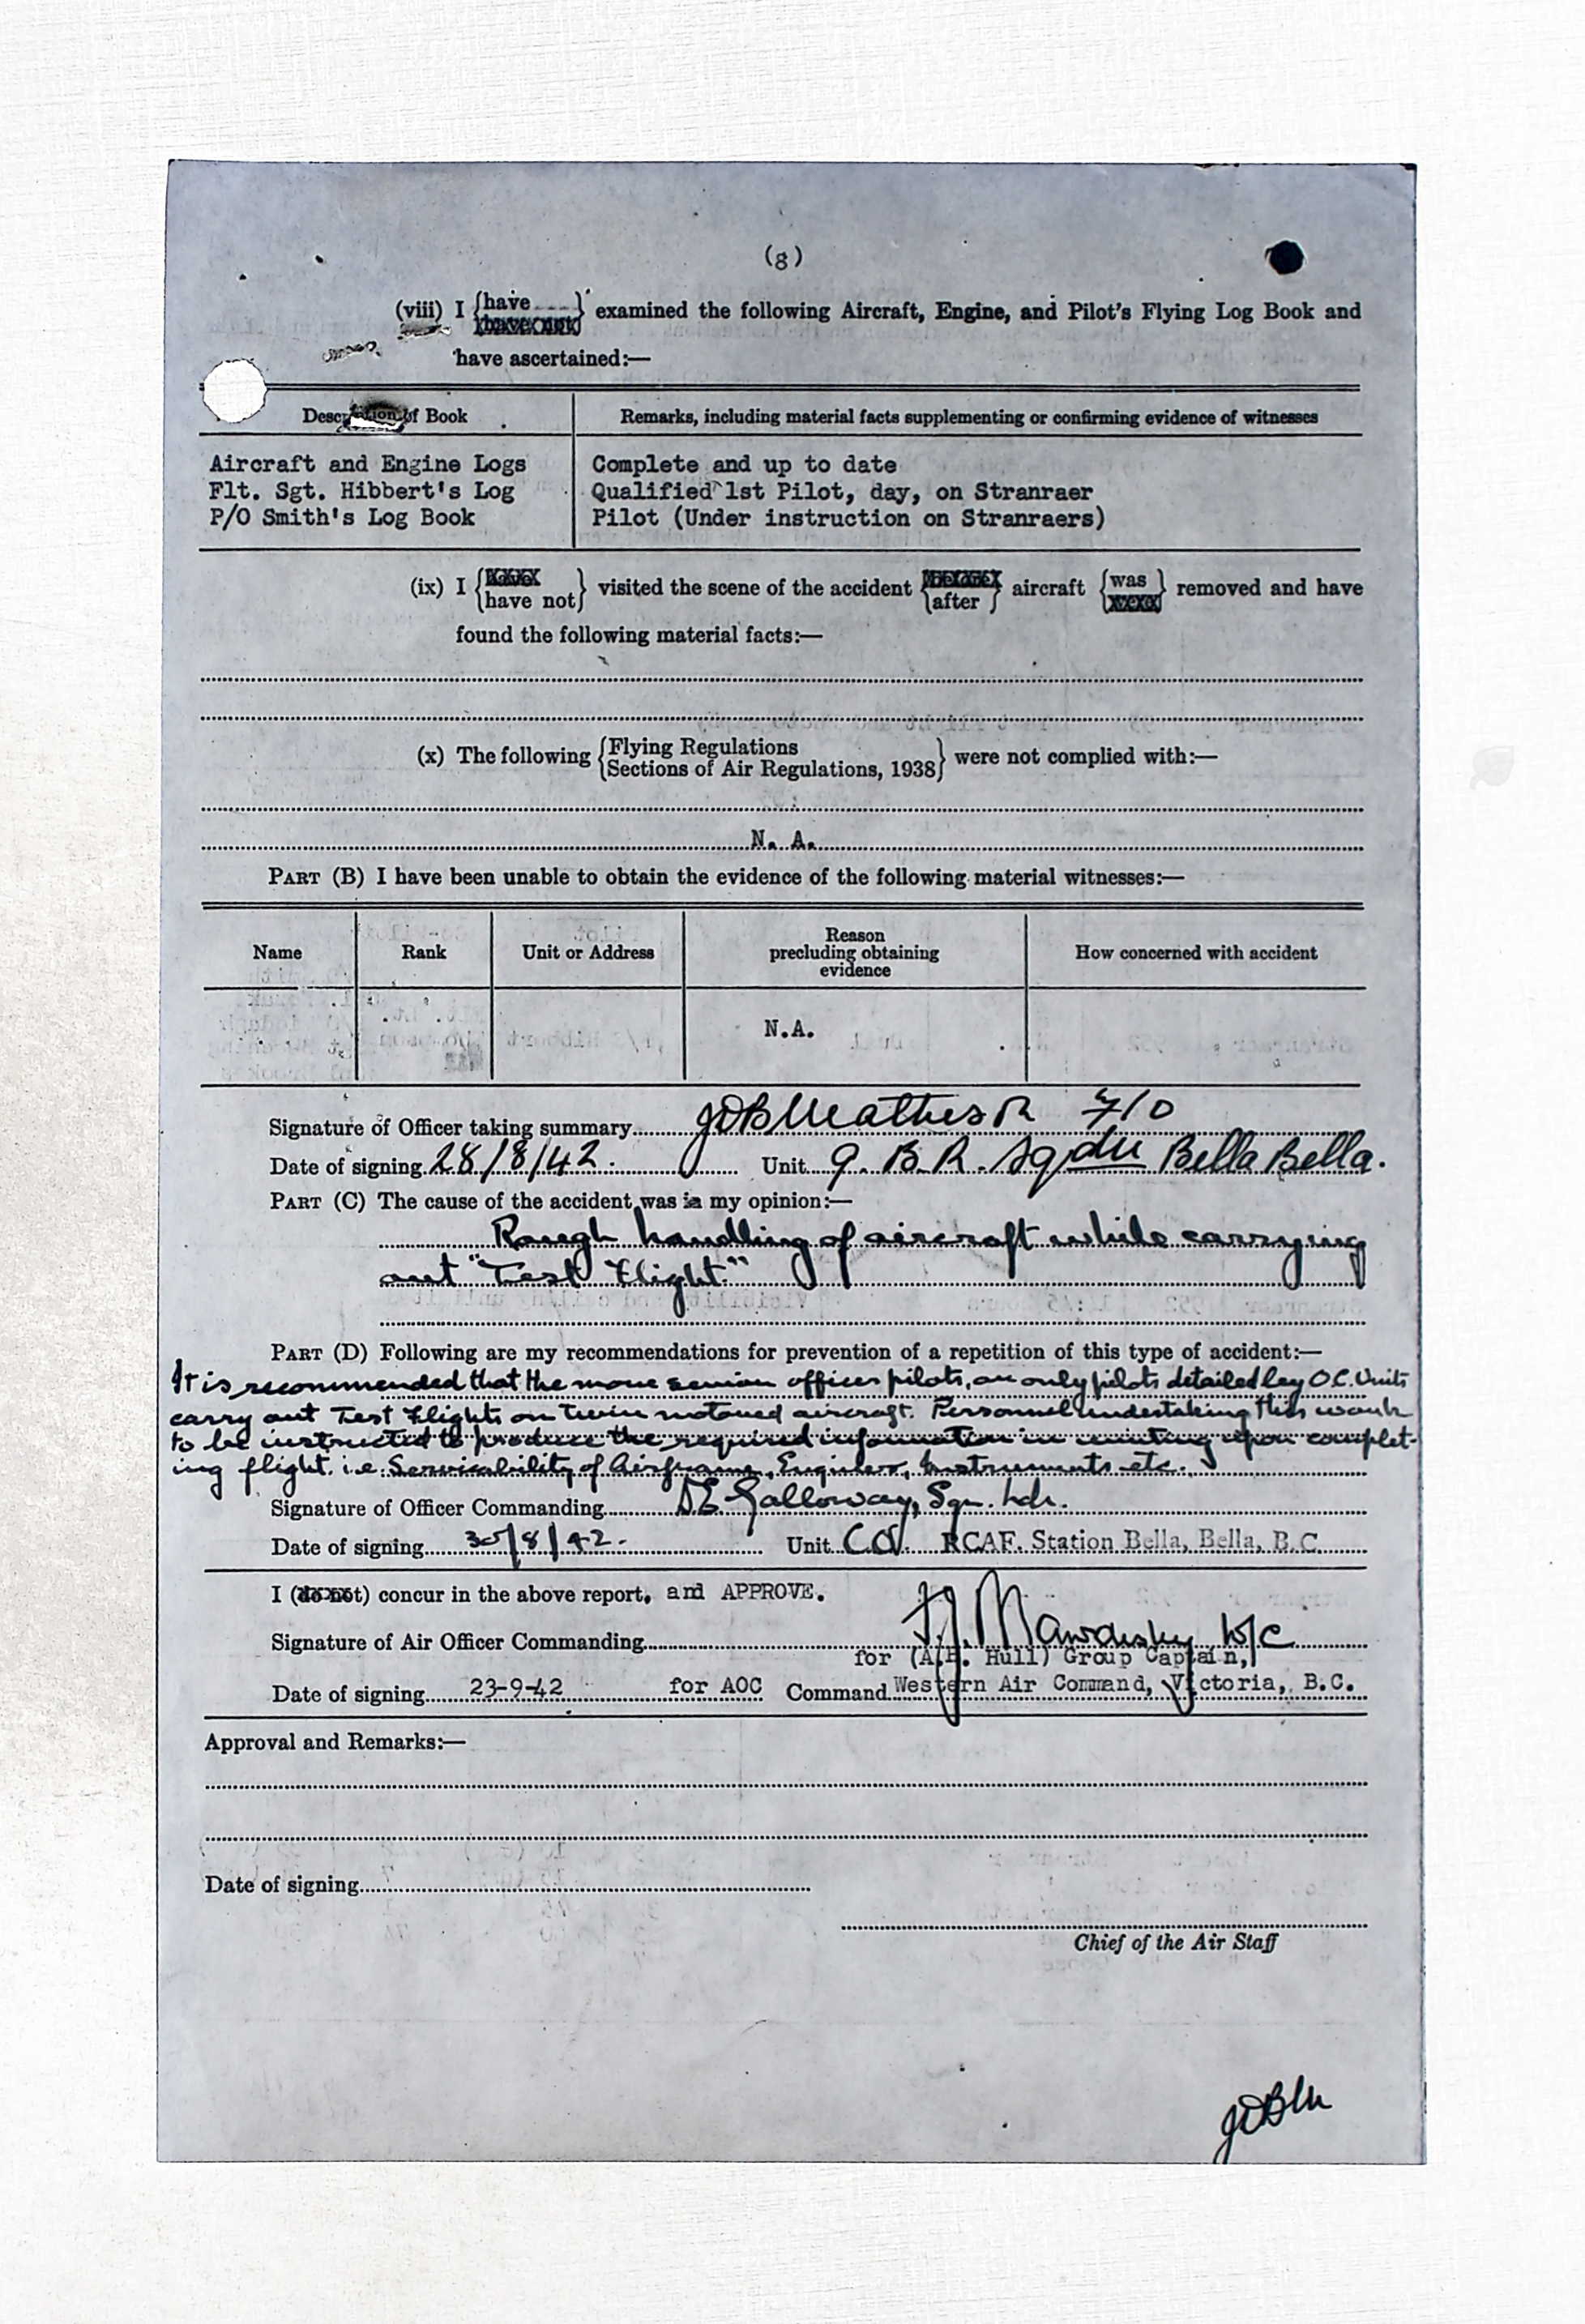 (8)
(viii) I {have / have not} examined the following Aircraft, Engine, and Pilot's Flying Log Book and
have ascertained:—
Description of Book Remarks, including material facts supplementing or confirming evidence of witnesses
Aircraft and Engine Logs Complete and up to date
Flt. Sgt. Hibbert's Log Qualified 1st Pilot, day, on Stranraer
P/O Smith's Log Book Pilot (Under instruction on Stranraers)
(ix) I {have not} visited the scene of the accident {after} aircraft {was} removed and have
found the following material facts:—
(x) The following {Flying Regulations
Sections of Air Regulations, 1938} were not complied with:—
N. A.
PART (B) I have been unable to obtain the evidence of the following material witnesses:—
Name Rank Unit or Address Reason precluding obtaining evidence How concerned with accident
N.A.
Signature of Officer taking summary JDB Matheson F/O
Date of signing 28/8/42. Unit 9. B.R. Sqdn Bella Bella.
PART (C) The cause of the accident was in my opinion:—
Rough handling of aircraft while carrying
out "Test Flight."
PART (D) Following are my recommendations for prevention of a repetition of this type of accident:—
It is recommended that the more senior officer pilots, or only pilots detailed by O.C. Units
carry out Test Flights on twin motored aircraft. Personnel undertaking this work
to be instructed to produce the required information in writing upon complet-
ing flight. i.e. Servicability of Airframe, Engines, Instruments etc.
Signature of Officer Commanding DE Galloway, Sqn. Ldr.
Date of signing 30/8/42. Unit CO. RCAF. Station Bella, Bella, B.C.
I (do not) concur in the above report, and APPROVE.
Signature of Air Officer Commanding F.J. Mawdesley W/C
for (A.H. Hull) Group Captain,
Date of signing 23-9-42 for AOC Command Western Air Command, Victoria, B.C.
Approval and Remarks:—
Date of signing
Chief of the Air Staff
JDBM